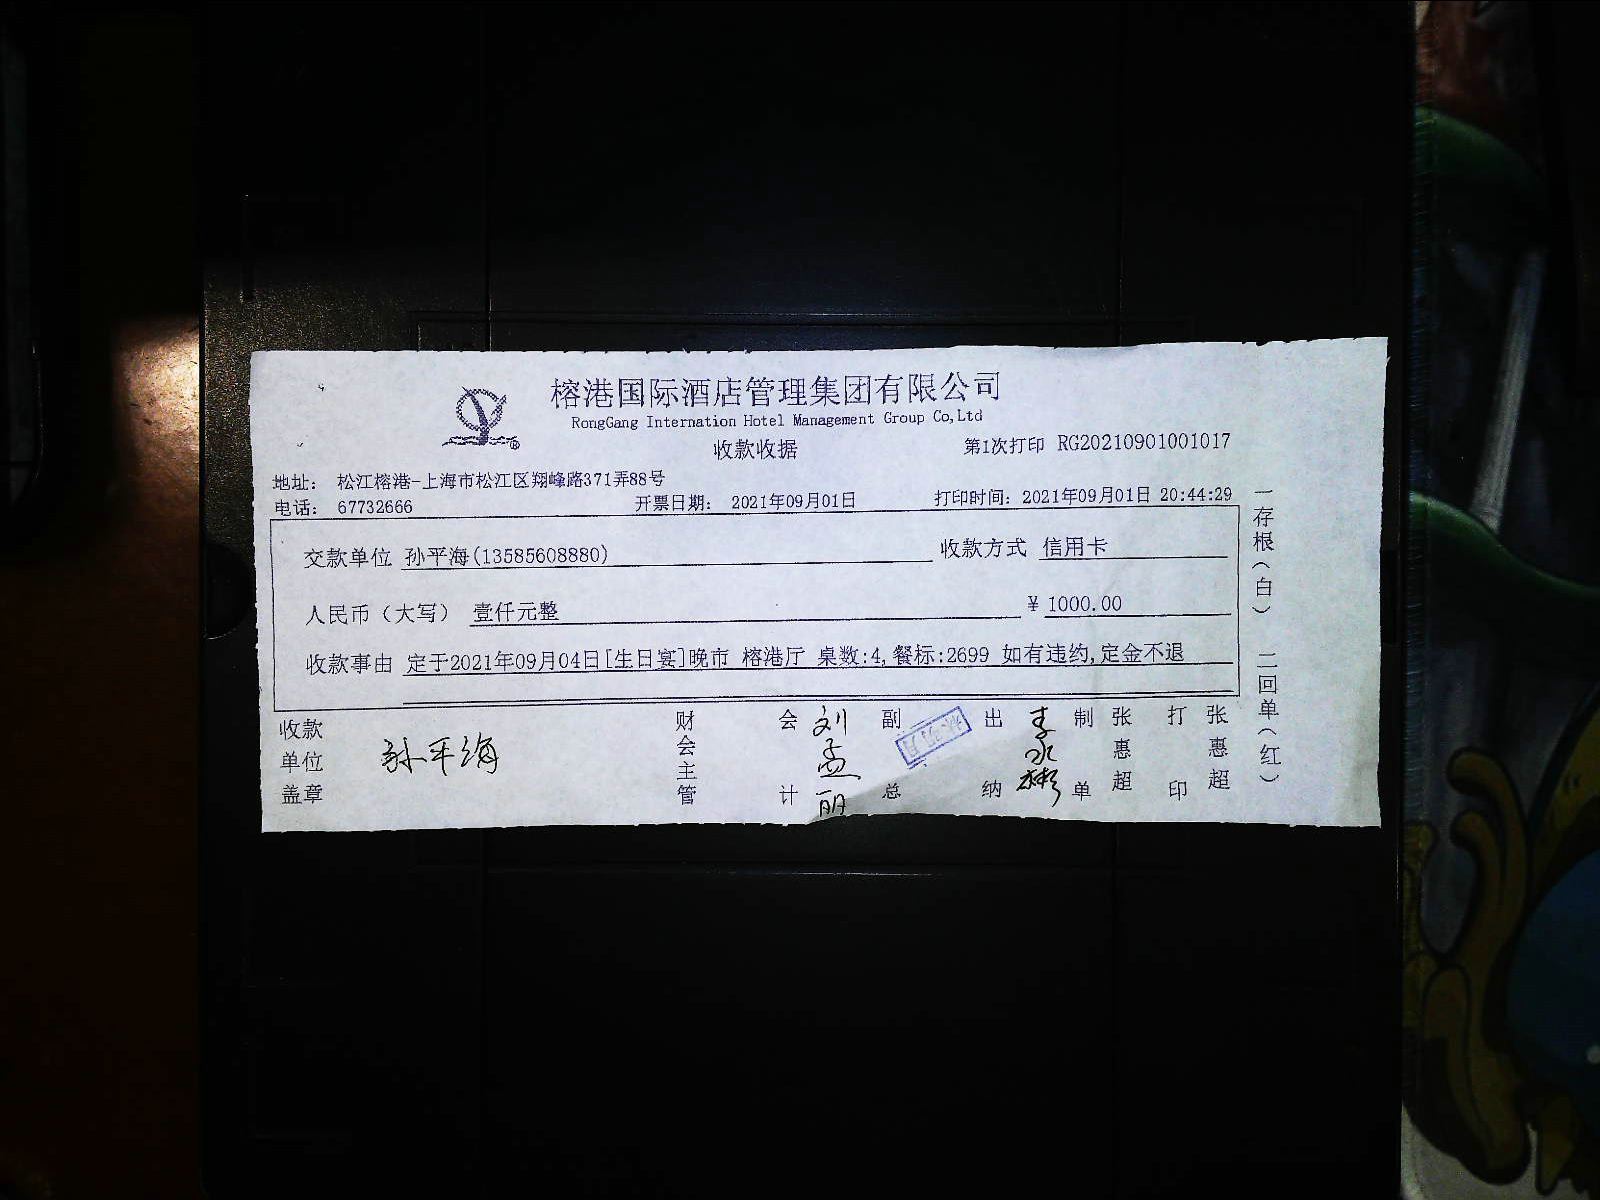 榕港国际酒店管理集团有限公司
RongGang Internation Hotel Management Group Co,Ltd
收款收据
第1次打印 RG20210901001017
地址： 松江榕港-上海市松江区翔峰路371弄88号
电话： 67732666 开票日期： 2021年09月01日 打印时间：2021年09月01日 20:44:29
交款单位 孙平海(13585608880) 收款方式 信用卡
人民币（大写） 壹仟元整 ¥ 1000.00
收款事由 定于2021年09月04日[生日宴]晚市 榕港厅 桌数:4,餐标:2699 如有违约,定金不退
收款单位盖章 孙平海
财会主管
会计 刘孟丽
副总
出纳 李永彬
制单 张惠超
打印 张惠超
一存根（白） 二回单（红）